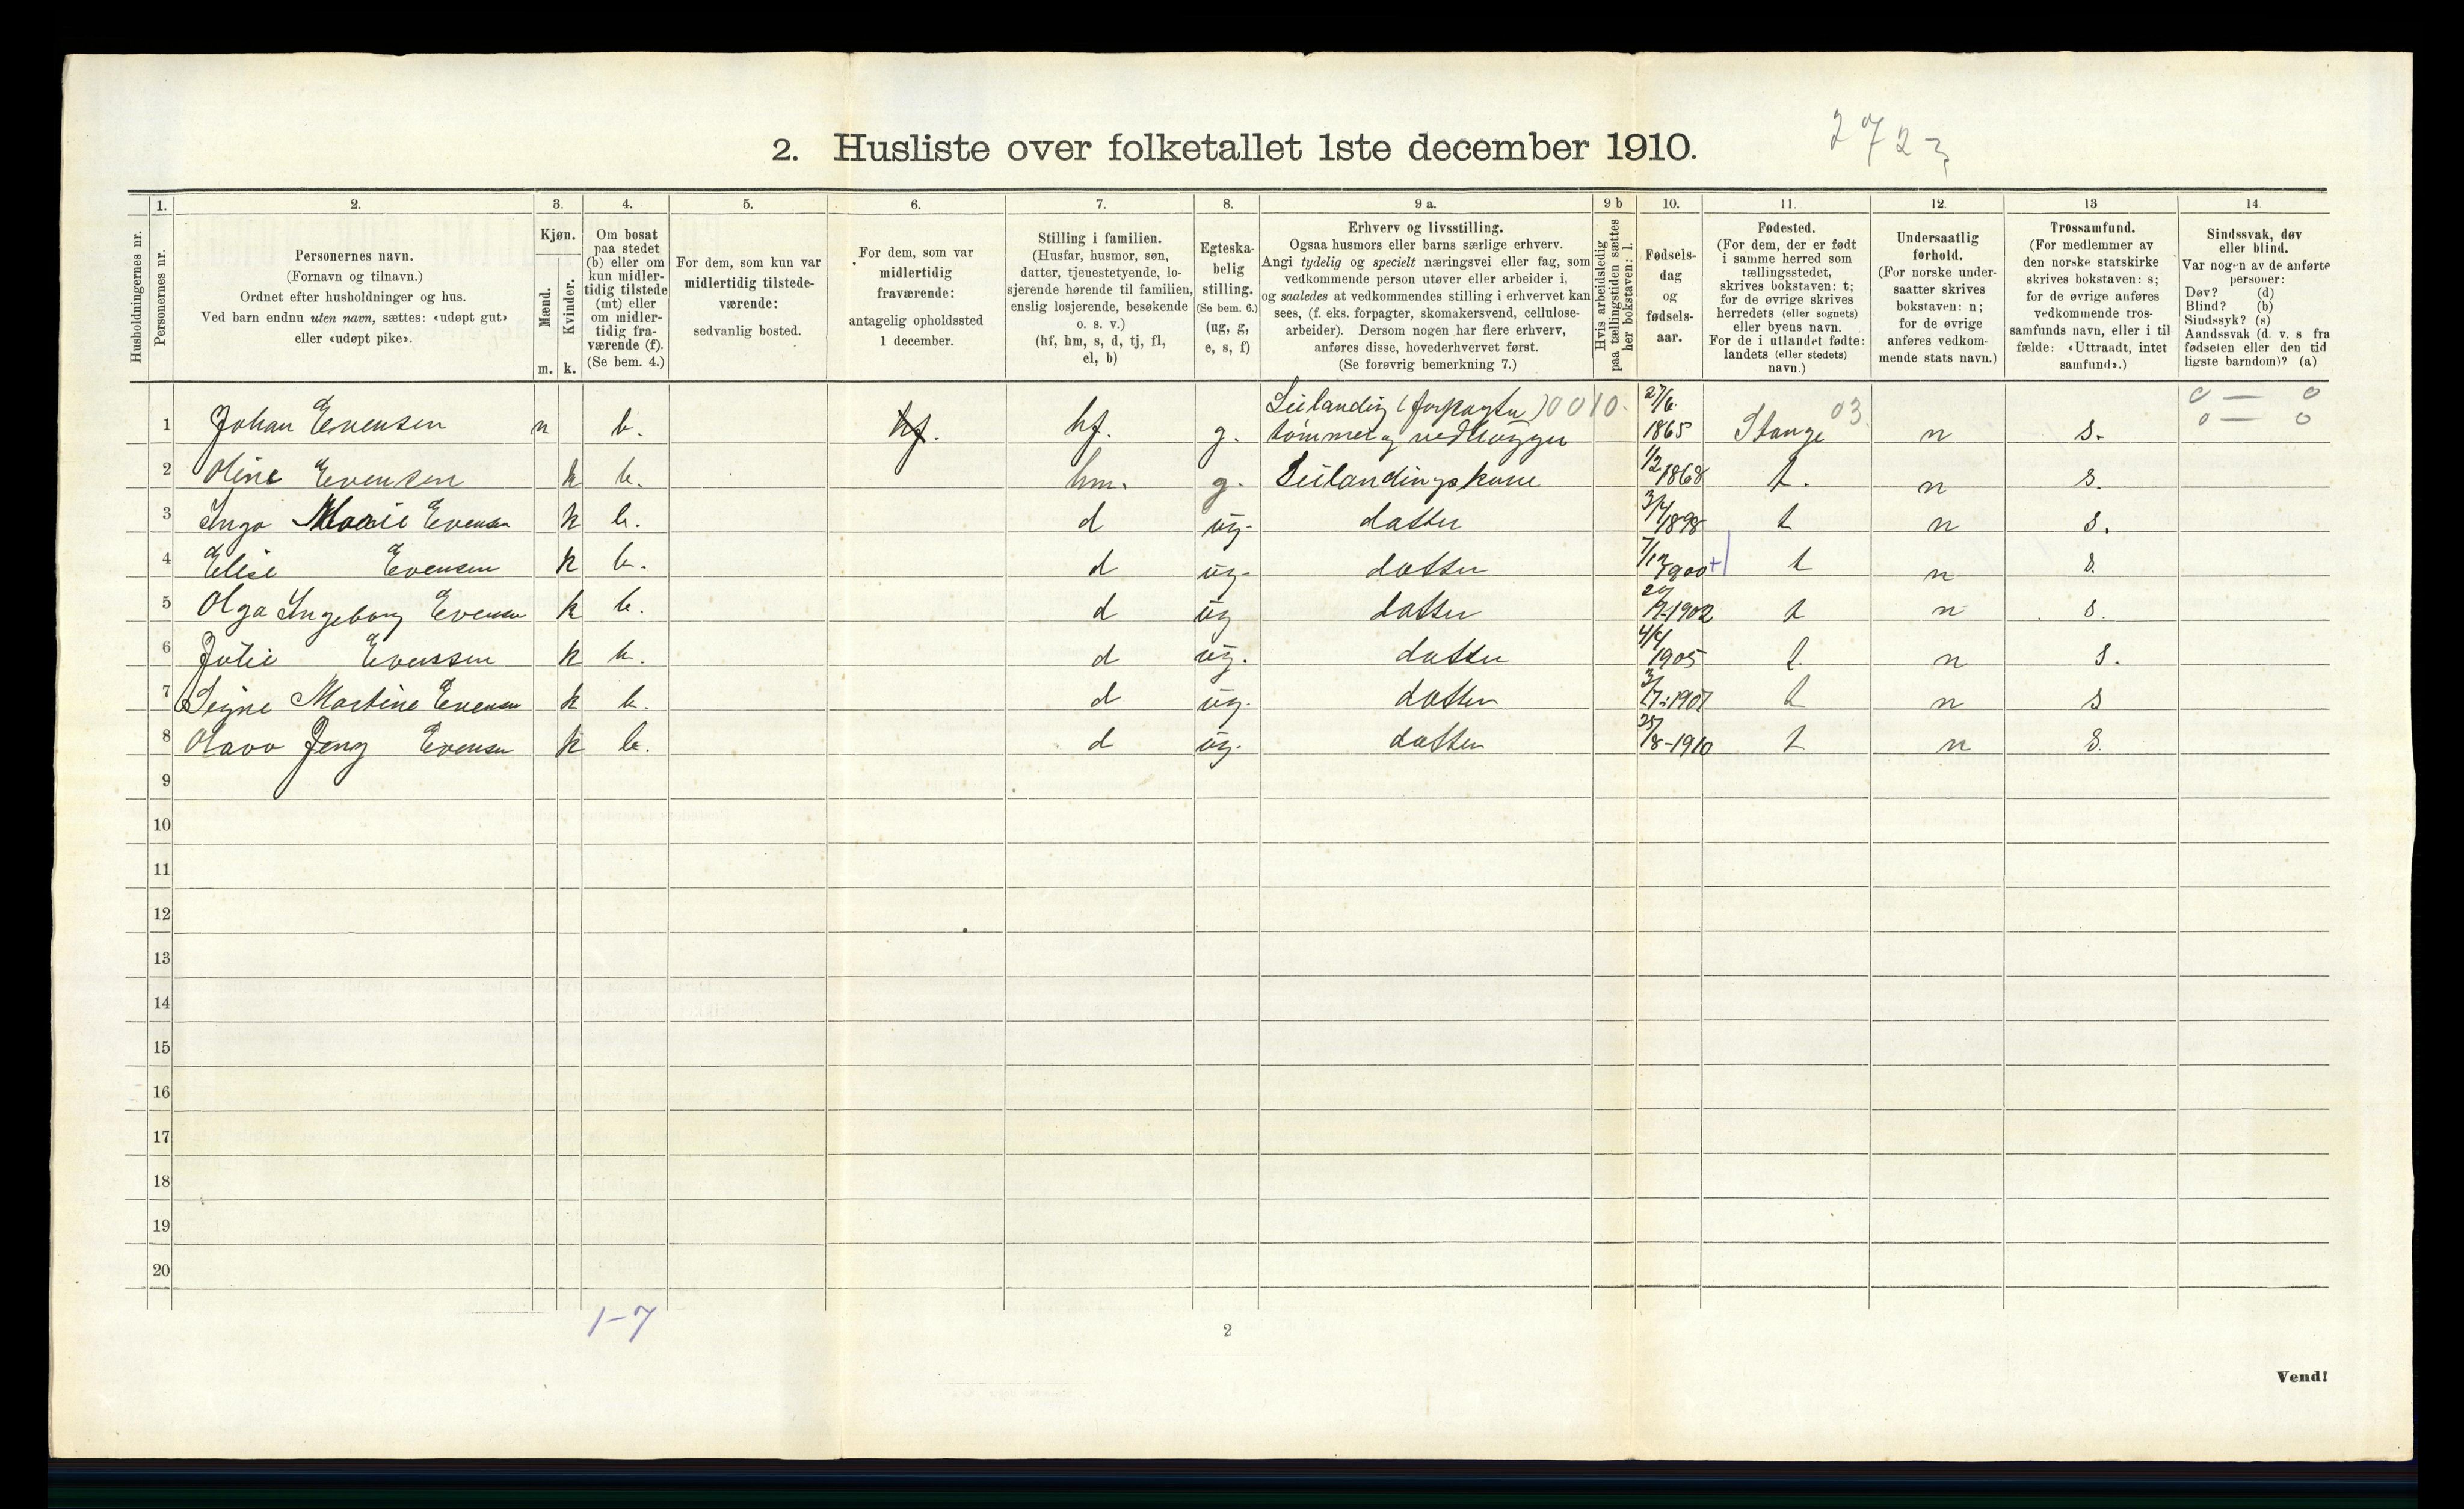 2. Husliste over folketallet 1ste december 1910.
272
Husholdningernes nr.
1.
Personernes nr.
2.
Personernes navn.
(Fornavn og tilnavn.)
Ordnet efter husholdninger og hus.
Ved barn endnu uten navn, sættes: «udøpt gut»
eller «udøpt pike».
3.
Kjøn.
Mænd.
Kvinder.
m. k.
4.
Om bosat
paa stedet
(b) eller om
kun midler-
tidig tilstede
(mt) eller
om midler-
tidig fra-
værende (f).
(Se bem. 4.)
5.
For dem, som kun var
midlertidig tilstede-
værende:
sedvanlig bosted.
6.
For dem, som var
midlertidig
fraværende:
antagelig opholdssted
1 december.
7.
Stilling i familien.
(Husfar, husmor, søn,
datter, tjenestetyende, lo-
sjerende hørende til familien,
enslig losjerende, besøkende
o. s. v.)
(hf, hm, s, d, tj, fl,
el, b)
8.
Egteska-
belig
stilling.
(Se bem. 6.)
(ug, g,
e, s, f)
9 a.
Erhverv og livsstilling.
Ogsaa husmors eller barns særlige erhverv.
Angi tydelig og specielt næringsvei eller fag, som
vedkommende person utøver eller arbeider i,
og saaledes at vedkommendes stilling i erhvervet kan
sees, (f. eks. forpagter, skomakersvend, cellulose-
arbeider). Dersom nogen har flere erhverv,
anføres disse, hovederhvervet først.
(Se forøvrig bemerkning 7.)
9 b
Hvis arbeidsledig
paa tællingstiden sættes
her bokstaven: l.
10.
Fødsels-
dag
og
fødsels-
aar.
11.
Fødested.
(For dem, der er født
i samme herred som
tællingsstedet,
skrives bokstaven: t;
for de øvrige skrives
herredets (eller sognets)
eller byens navn.
For de i utlandet fødte:
landets (eller stedets)
navn.)
12.
Undersaatlig
forhold.
(For norske under-
saatter skrives
bokstaven: n;
for de øvrige
anføres vedkom-
mende stats navn.)
13
Trossamfund.
(For medlemmer av
den norske statskirke
skrives bokstaven: s;
for de øvrige anføres
vedkommende tros-
samfunds navn, eller i til
fælde: «Uttraadt, intet
samfund».)
14
Sindssvak, døv
eller blind.
Var nogen av de anførte
personer:
Døv? (d)
Blind? (b)
Sindssyk? (s)
Aandssvak (d. v. s fra
fødselen eller den tid
ligste barndom)? (a)
Leilanding (forpagter) 0010. 27/6 03 0 — 0
1 Johan Evensen m b. hf. hf. g. tömmer og vedhugger 1865 Stange n s. 0 — 0
2 Oline Evensen k b. hm. g. Leilandingskone 1/2 1868 t. n s.
3 Inga Marie Evensen k b. d ug. datter 3/4 1898 t n s.
4 Elise Evensen k b. d ug. datter 7/12 1900 + t n s.
5 Olga Ingeborg Evensen k b. d ug datter 1902 t n s.
6 Julie Evensen k b. d ug. datter 4/4 1905 t. n s.
7 Signe Martine Evensen k b. d ug. datter 1907 t n s
8 Olava Jeny Evensen k b. d ug. datter 25/8-1910 t n s.
9
10
11
12
13
14
15
16
17
18
19
20
1-7
2
Vend!